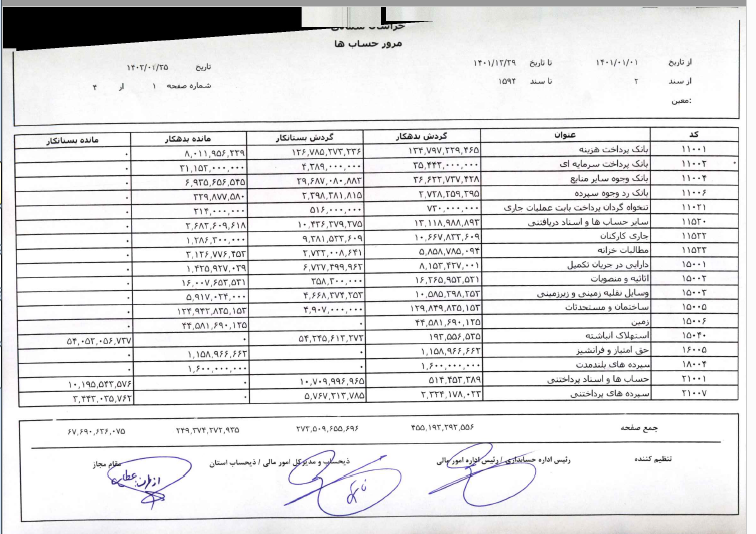 مرور حساب ها
از تاریخ ۱۴۰۱/۰۱/۰۱ تا تاریخ ۱۴۰۱/۱۲/۲۹ تاریخ
از سند ۲ تا سند ۱۵۹۴ شماره صفحه ۱ از ۴
معین:
کد عنوان گردش بدهکار گردش بستانکار مانده بدهکار مانده بستانکار
۱۱۰۰۱ بانک پرداخت هزینه ۱۳۴,۷۹۷,۲۲۹,۴۶۵ ۱۲۶,۷۸۵,۲۷۳,۲۳۶ ۸,۰۱۱,۹۵۶,۲۲۹ ۰
۱۱۰۰۲ بانک پرداخت سرمایه ای ۳۵,۴۴۲,۰۰۰,۰۰۰ ۴,۲۸۹,۰۰۰,۰۰۰ ۳۱,۱۵۳,۰۰۰,۰۰۰ ۰
۱۱۰۰۴ بانک وجوه سایر منابع ۳۶,۶۲۲,۷۳۷,۴۲۸ ۲۹,۶۸۷,۰۸۰,۸۸۳ ۶,۹۳۵,۶۵۶,۵۴۵ ۰
۱۱۰۰۶ بانک رد وجوه سپرده ۲,۷۲۸,۲۵۹,۳۹۵ ۲,۳۹۸,۳۸۱,۸۱۵ ۳۲۹,۸۷۷,۵۸۰ ۰
۱۱۰۲۱ تنخواه گردان پرداخت بابت عملیات جاری ۷۳۰,۰۰۰,۰۰۰ ۵۱۶,۰۰۰,۰۰۰ ۲۱۴,۰۰۰,۰۰۰ ۰
۱۱۵۲۰ سایر حساب ها و اسناد دریافتنی ۱۳,۱۱۸,۹۸۸,۸۹۳ ۱۰,۴۳۶,۳۷۹,۲۷۵ ۲,۶۸۲,۶۰۹,۶۱۸ ۰
۱۱۵۲۲ جاری کارکنان ۱۰,۶۶۷,۸۳۳,۶۰۹ ۹,۳۸۱,۵۳۳,۶۰۹ ۱,۲۸۶,۳۰۰,۰۰۰ ۰
۱۱۵۳۳ مطالبات خزانه ۵,۸۵۸,۷۸۵,۰۹۴ ۲,۷۳۲,۰۰۸,۶۴۱ ۳,۱۲۶,۷۷۶,۴۵۳ ۰
۱۵۰۰۱ دارایی در جریان تکمیل ۸,۱۵۳,۴۲۷,۰۰۱ ۶,۷۲۷,۴۹۹,۹۶۲ ۱,۴۲۵,۹۲۷,۰۳۹ ۰
۱۵۰۰۲ اثاثیه و منصوبات ۱۶,۲۶۵,۹۵۳,۵۳۱ ۲۵۸,۳۰۰,۰۰۰ ۱۶,۰۰۷,۶۵۳,۵۳۱ ۰
۱۵۰۰۳ وسایل نقلیه زمینی و زیرزمینی ۱۰,۵۸۵,۳۹۸,۲۵۳ ۴,۶۶۸,۳۷۴,۲۵۳ ۵,۹۱۷,۰۲۴,۰۰۰ ۰
۱۵۰۰۵ ساختمان و مستحدثات ۱۲۹,۸۴۹,۸۳۵,۱۵۳ ۴,۹۰۷,۰۰۰,۰۰۰ ۱۲۴,۹۴۲,۸۳۵,۱۵۳ ۰
۱۵۰۰۶ زمین ۴۴,۵۸۱,۶۹۰,۱۲۵ ۰ ۴۴,۵۸۱,۶۹۰,۱۲۵ ۰
۱۵۰۴۰ استهلاک انباشته ۱۹۲,۵۵۶,۵۳۵ ۵۴,۲۴۵,۶۱۳,۲۷۲ ۰ ۵۴,۰۵۳,۰۵۶,۷۳۷
۱۶۰۰۵ حق امتیاز و فرانشیز ۱,۱۵۸,۹۶۶,۶۶۲ ۰ ۱,۱۵۸,۹۶۶,۶۶۲ ۰
۱۸۰۰۴ سپرده های بلندمدت ۱,۶۰۰,۰۰۰,۰۰۰ ۰ ۱,۶۰۰,۰۰۰,۰۰۰ ۰
۲۱۰۰۱ حساب ها و اسناد پرداختنی ۵۱۴,۴۵۳,۳۸۹ ۱۰,۷۰۹,۹۹۶,۹۶۵ ۰ ۱۰,۱۹۵,۵۴۳,۵۷۶
۲۱۰۰۷ سپرده های پرداختنی ۲,۳۲۴,۱۷۸,۰۲۳ ۵,۷۶۷,۲۱۳,۷۸۵ ۰ ۳,۴۴۳,۰۳۵,۷۶۲
جمع صفحه ۴۵۵,۱۹۲,۲۹۲,۵۵۶ ۲۷۳,۵۰۹,۶۵۵,۶۹۶ ۲۴۹,۳۷۴,۲۷۲,۹۳۵ ۶۷,۶۹۰,۶۳۶,۰۷۵
تنظیم کننده رئیس اداره حسابداری / رئیس اداره امور مالی ذیحساب و مدیرکل امور مالی / ذیحساب استان مقام مجاز